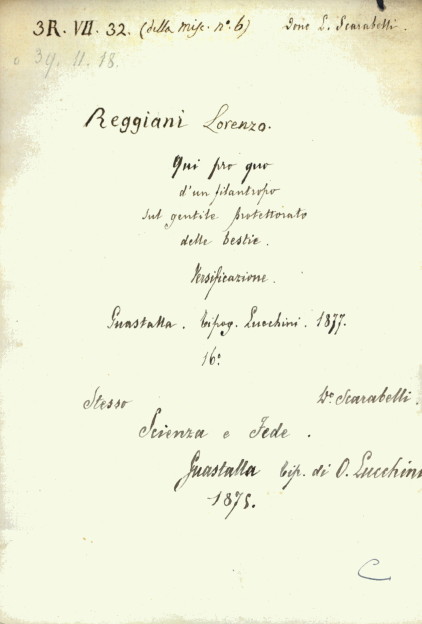 3R. VII. 32. (della misc. n.º 6) Dono L. Scarabelli.
o 39. 11. 18.
Reggiani Lorenzo.
Qui pro quo
d'un filantropo
sul gentile protettorato
delle bestie.
Versificazione.
Guastalla. tipog. Lucchini. 1877.
16º
Stesso Dº Scarabelli.
Scienza e Fede.
Guastalla tip. di O. Lucchini
1875.
C